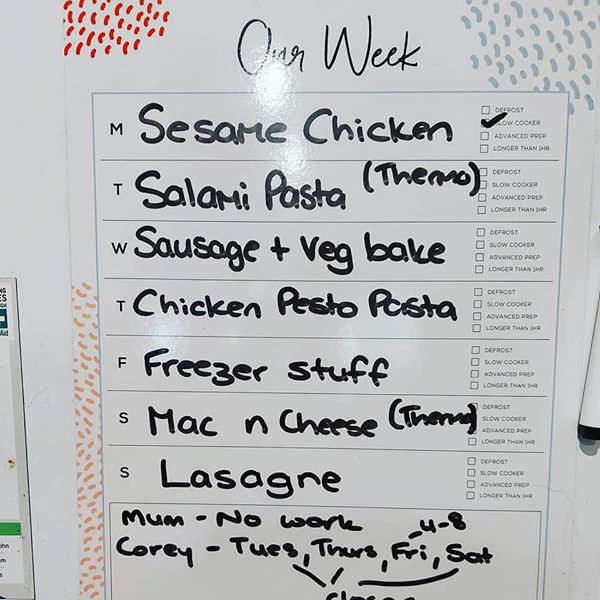 Our Week
M Sesame Chicken
DEFROST
SLOW COOKER
ADVANCED PREP
LONGER THAN 1HR
T Salami Pasta (Thermo)
DEFROST
SLOW COOKER
ADVANCED PREP
LONGER THAN 1HR
W Sausage + Veg bake
DEFROST
SLOW COOKER
ADVANCED PREP
LONGER THAN 1HR
T Chicken Pesto Pasta
DEFROST
SLOW COOKER
ADVANCED PREP
LONGER THAN 1HR
F Freezer stuff
DEFROST
SLOW COOKER
ADVANCED PREP
LONGER THAN 1HR
S Mac n Cheese (Thermo)
DEFROST
SLOW COOKER
ADVANCED PREP
LONGER THAN 1HR
S Lasagne
DEFROST
SLOW COOKER
ADVANCED PREP
LONGER THAN 1HR
Mum - No work
4-8
Corey - Tues, Thurs, Fri, Sat